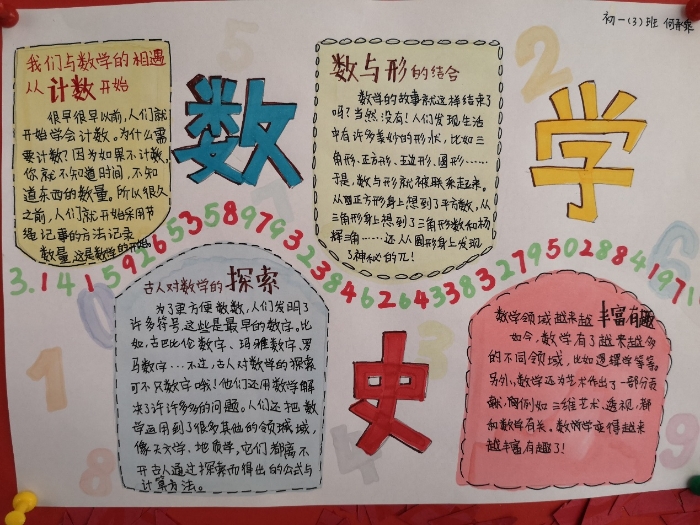 初一(3)班
我们与数学的相遇
从计数开始
很早很早以前,人们就
开始学会计数。为什么需
要计数?因为如果不计数,
你就不知道时间,不知
道东西的数量。所以很久
之前,人们就开始采用节
绳记事的方法记录
数量,这是数学的开始。
数
数与形的结合
数学的故事就这样结束了
吗?当然没有!人们发现生活
中有许多美妙的形状,比如三
角形、正方形、五边形、圆形……
于是,数与形就被联系起来。
从正方形身上想到了平方数,从
三角形身上想到了三角形数和杨
辉三角……还从圆形身上发现
了神秘的π!
2
学
5
7
6
3.1415926535897932384626433832795028841971
0
1
8
3
4
9
古人对数学的探索
为了更方便数数,人们发明了
许多符号,这些是最早的数字。比
如,古巴比伦数字、玛雅数字、罗
马数字……不过,古人对数学的探索
可不只数字哦!他们还用数学解
决了许许多多的问题。人们还把数
学运用到了很多其他的领域域,
像天文学、地质学,它们都离不
开古人通过探索而得出的公式与
计算方法。
史
数学领域越来越丰富有趣
如今,数学有了越来越多
的不同领域,比如逻辑学等等。
另外,数学还为艺术作出了一部分贡
献,例如三维艺术、透视,都
和数学有关。数学变得越来
越丰富有趣了!